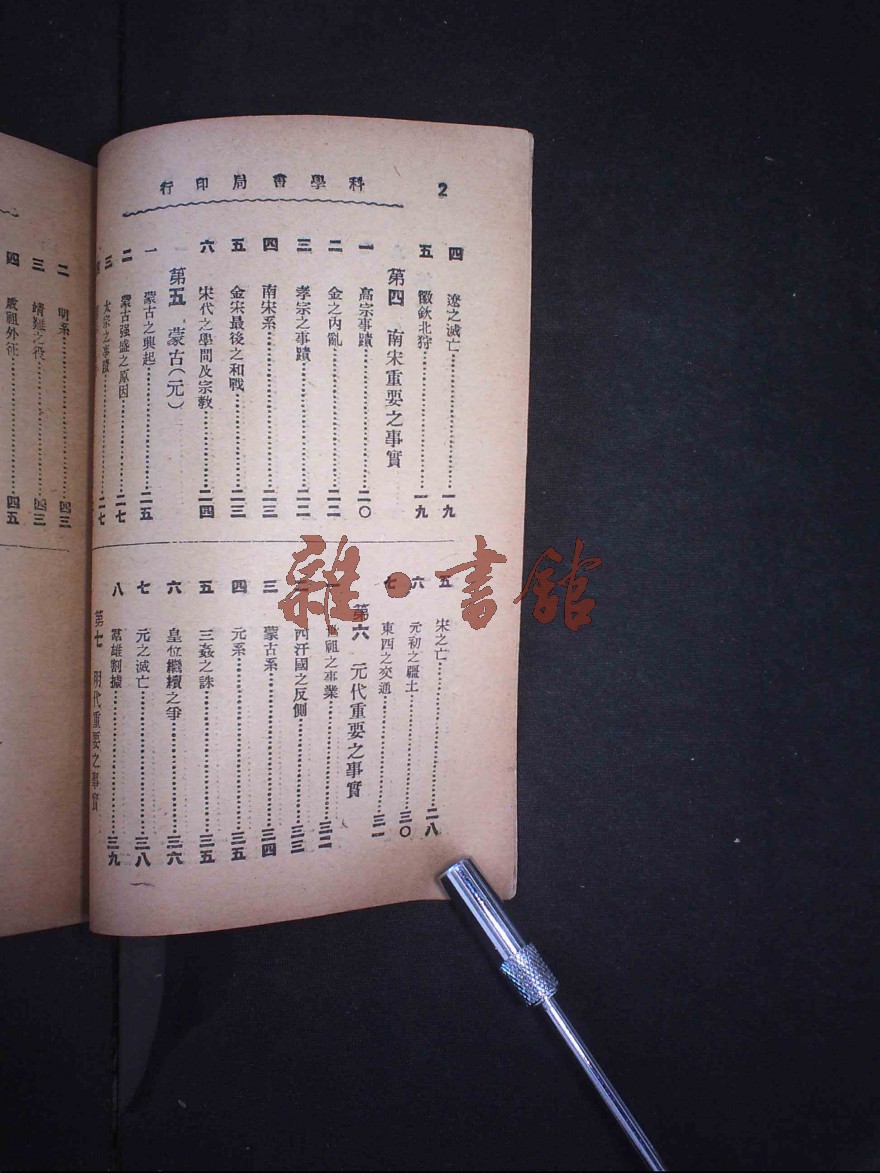 2
科學書局印行
四 遼之滅亡⋯⋯一九
五 徽欽北狩⋯⋯一九
第四 南宋重要之事實
一 高宗事蹟⋯⋯二〇
二 金之內亂⋯⋯二二
三 孝宗之事蹟⋯⋯二二
四 南宋系⋯⋯二三
五 金宋最後之和戰⋯⋯二三
六 宋代之學問及宗教⋯⋯二四
第五 蒙古(元)
一 蒙古之興起⋯⋯二五
二 蒙古强盛之原因⋯⋯二七
三 太宗之事蹟⋯⋯二七
五 宋之亡⋯⋯二八
六 元初之疆土⋯⋯三〇
七 東西之交通⋯⋯三一
第六 元代重要之事實
一 世祖之事業⋯⋯三二
二 四汗國之反側⋯⋯三三
三 蒙古系⋯⋯三四
四 元系⋯⋯三五
五 三姦之誅⋯⋯三五
六 皇位繼續之爭⋯⋯三六
七 元之滅亡⋯⋯三八
八 羣雄割據⋯⋯三九
第七 明代重要之事實
二 明系⋯⋯四三
三 靖難之役⋯⋯四三
四 成祖外征⋯⋯四五
雜·書館